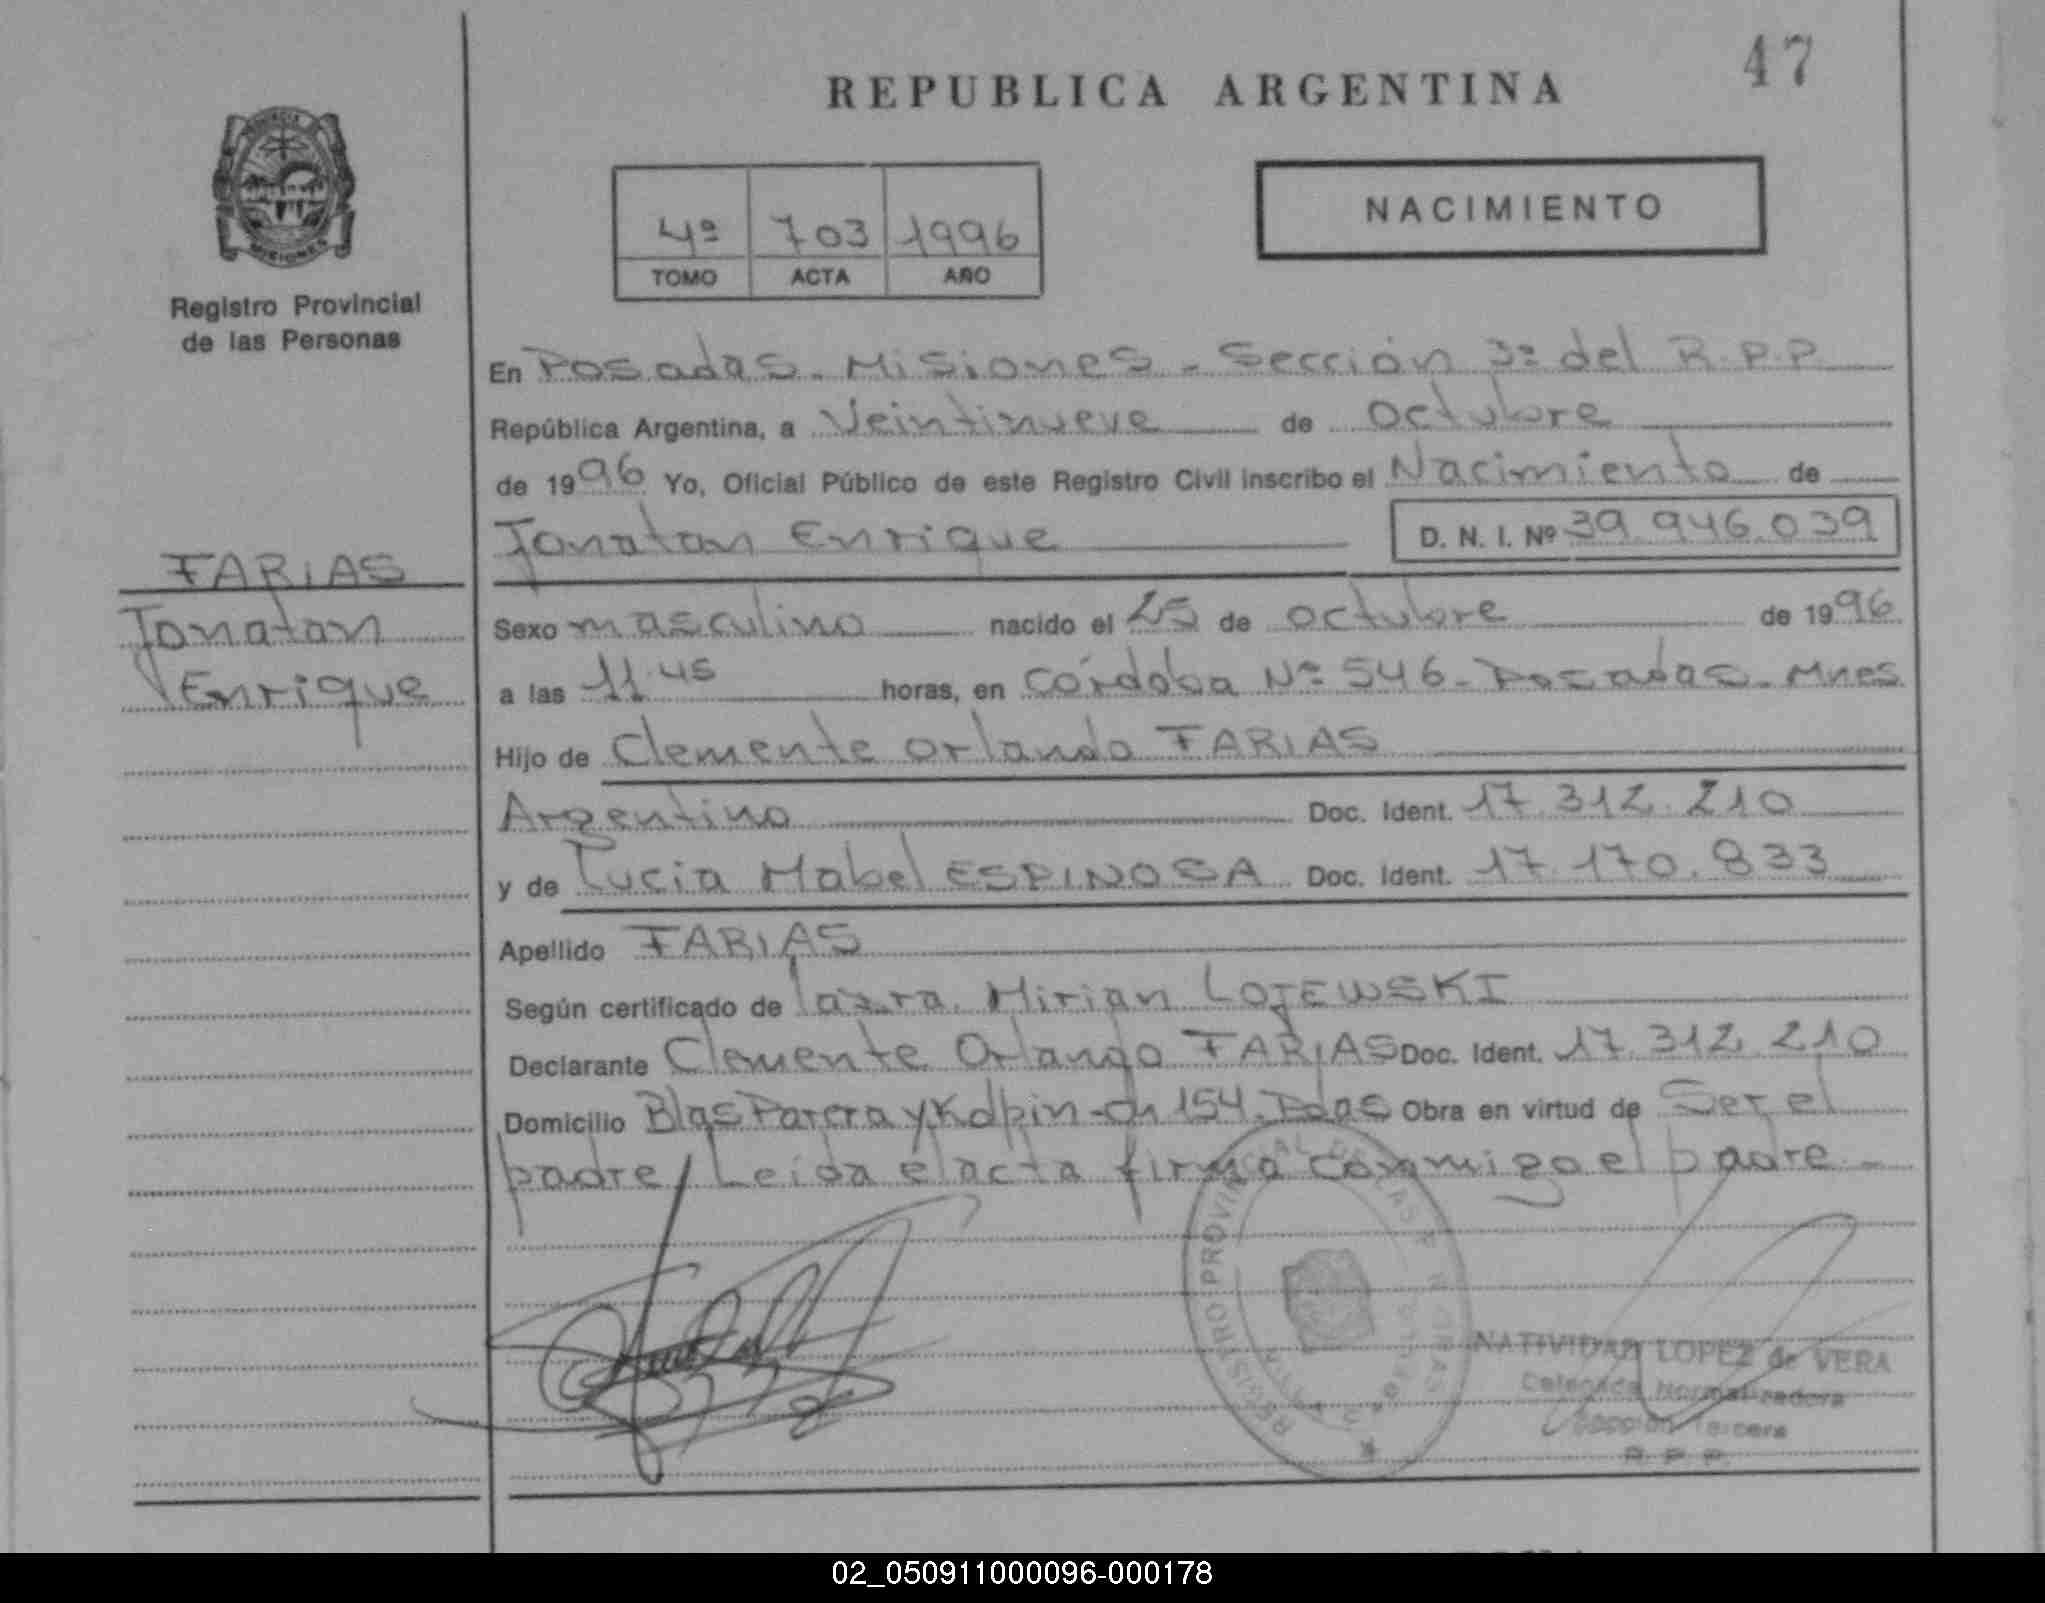 47
REPUBLICA ARGENTINA
NACIMIENTO
4º 703 1996
TOMO ACTA AÑO
Registro Provincial
de las Personas
En Posadas. Misiones - Sección 3º del R.P.P.
República Argentina, a Veintinueve de octubre
de 1996 Yo, Oficial Público de este Registro Civil inscribo el Nacimiento de
Jonatan Enrique D. N. I. Nº 39.946.039
FARIAS
Jonatan
Enrique
Sexo masculino nacido el 25 de octubre de 1996
a las 11.45 horas, en Córdoba Nº 546 - Posadas. Mnes
Hijo de Clemente Orlando FARIAS
Argentino Doc. Ident. 17.312.210
y de Lucia Mabel ESPINOSA Doc. Ident. 17.170.833
Apellido FARIAS
Según certificado de Mirian LOJEWSKI
Declarante Clemente Orlando FARIAS Doc. Ident. 17.312.210
Domicilio Blas Parera y Kolpin - Ch 154. Pdas Obra en virtud de Ser el
padre / Leida el acta firma conmigo el padre -
REGISTRO PROVINCIAL DE LAS PERSONAS
NATIVIDAD LOPEZ de VERA
Delegada Normalizadora
Sección Tercera
R. P. P.
02_050911000096-000178